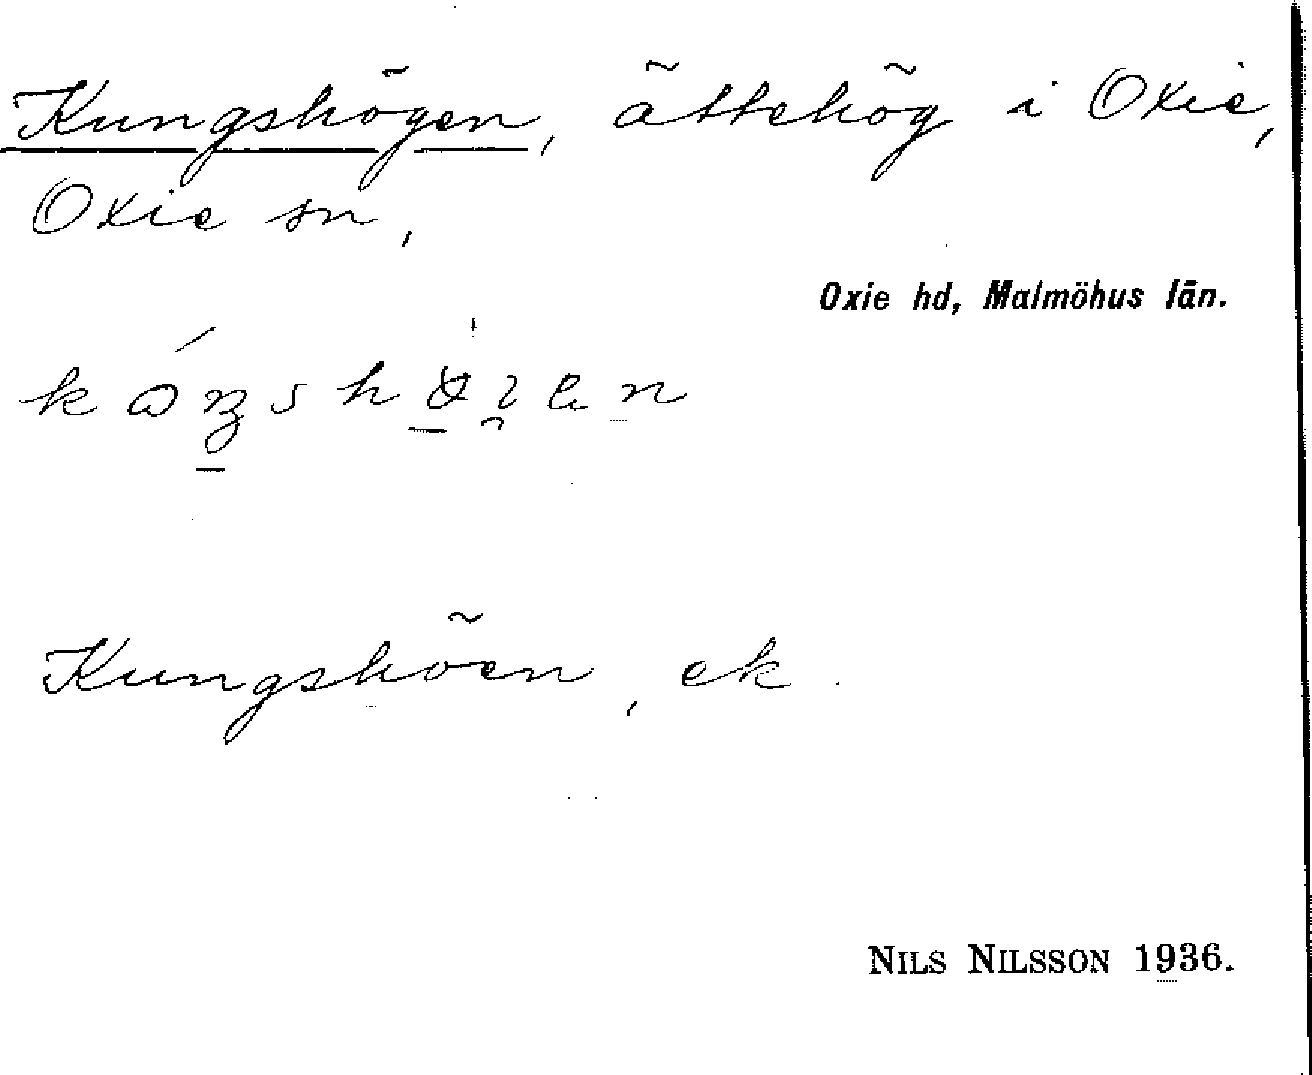 Kungshögen, ättehög i Oxie,
Oxie sn,
Oxie hd, Malmöhus län.
Kungshöen, ek.
NILS NILSSON 1936.